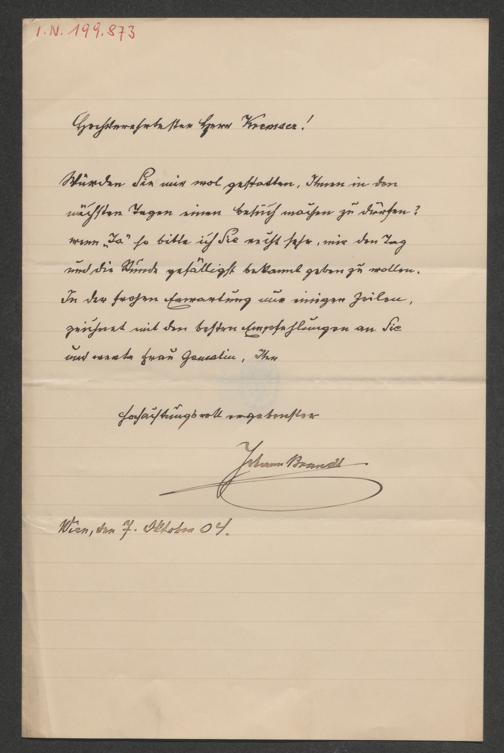 I.N. 199.873
Hochverehrtester Herr Kremser!
Würden Sie mir wol gestatten, Ihnen in den
nächsten Tagen einen besuch machen zu dürfen?
wenn „Ja" so bitte ich Sie recht sehr, mir den Tag
und die Stunde gefälligst bekannt geben zu wollen.
In der frohen Erwartung nur einiger Zeilen,
zeichnet mit den besten Empfehlungen an Sie
und werte Frau Gemalin, Ihr
hochachtungsvoll ergebenster
Johann Brandl
Wien, den 7. Oktober 04.